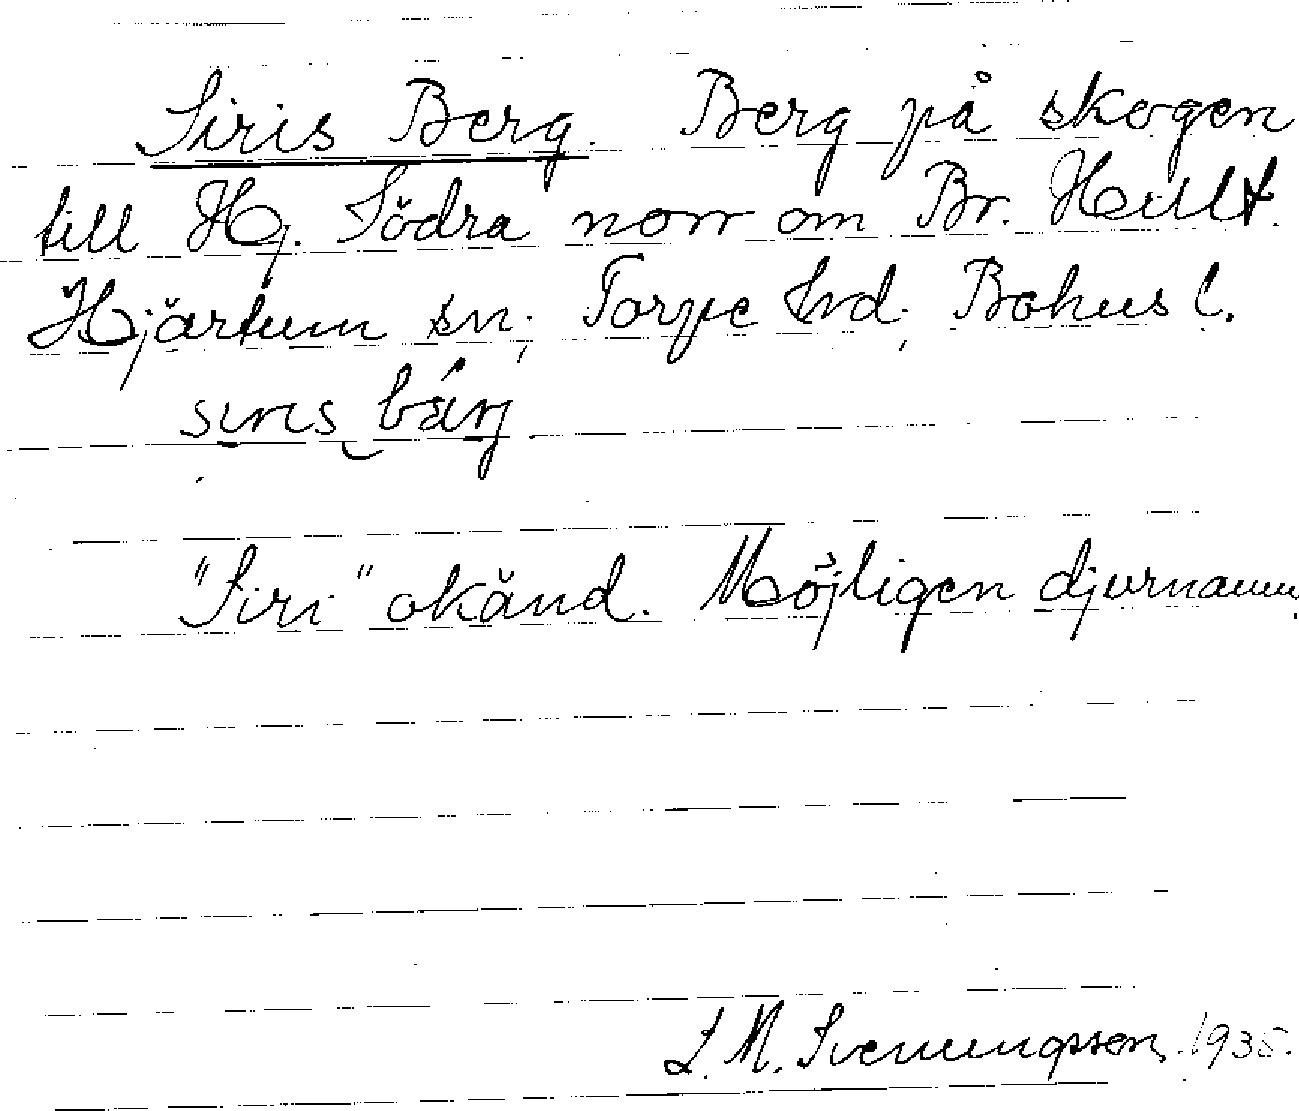 Siris Berg. Berg på skogen
till Hj. Södra norr om Br. Hult.
Hjärtum sn; Torpe hrd; Bohus l.
siris bärj
"Siri" okänd. Möjligen djurnamn.
L. M. Svenungsson. 1935.